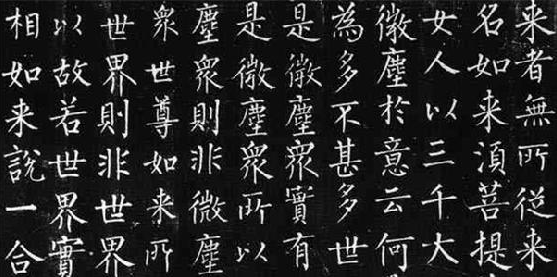 来者無所從来
名如来湏菩提
女人以三千大
微塵於意云何
為多不甚多世
是微塵眾實有
是微塵眾所以
塵眾則非微塵
眾世尊如来所
世界則非世界
以故若世界實
相如来說一合